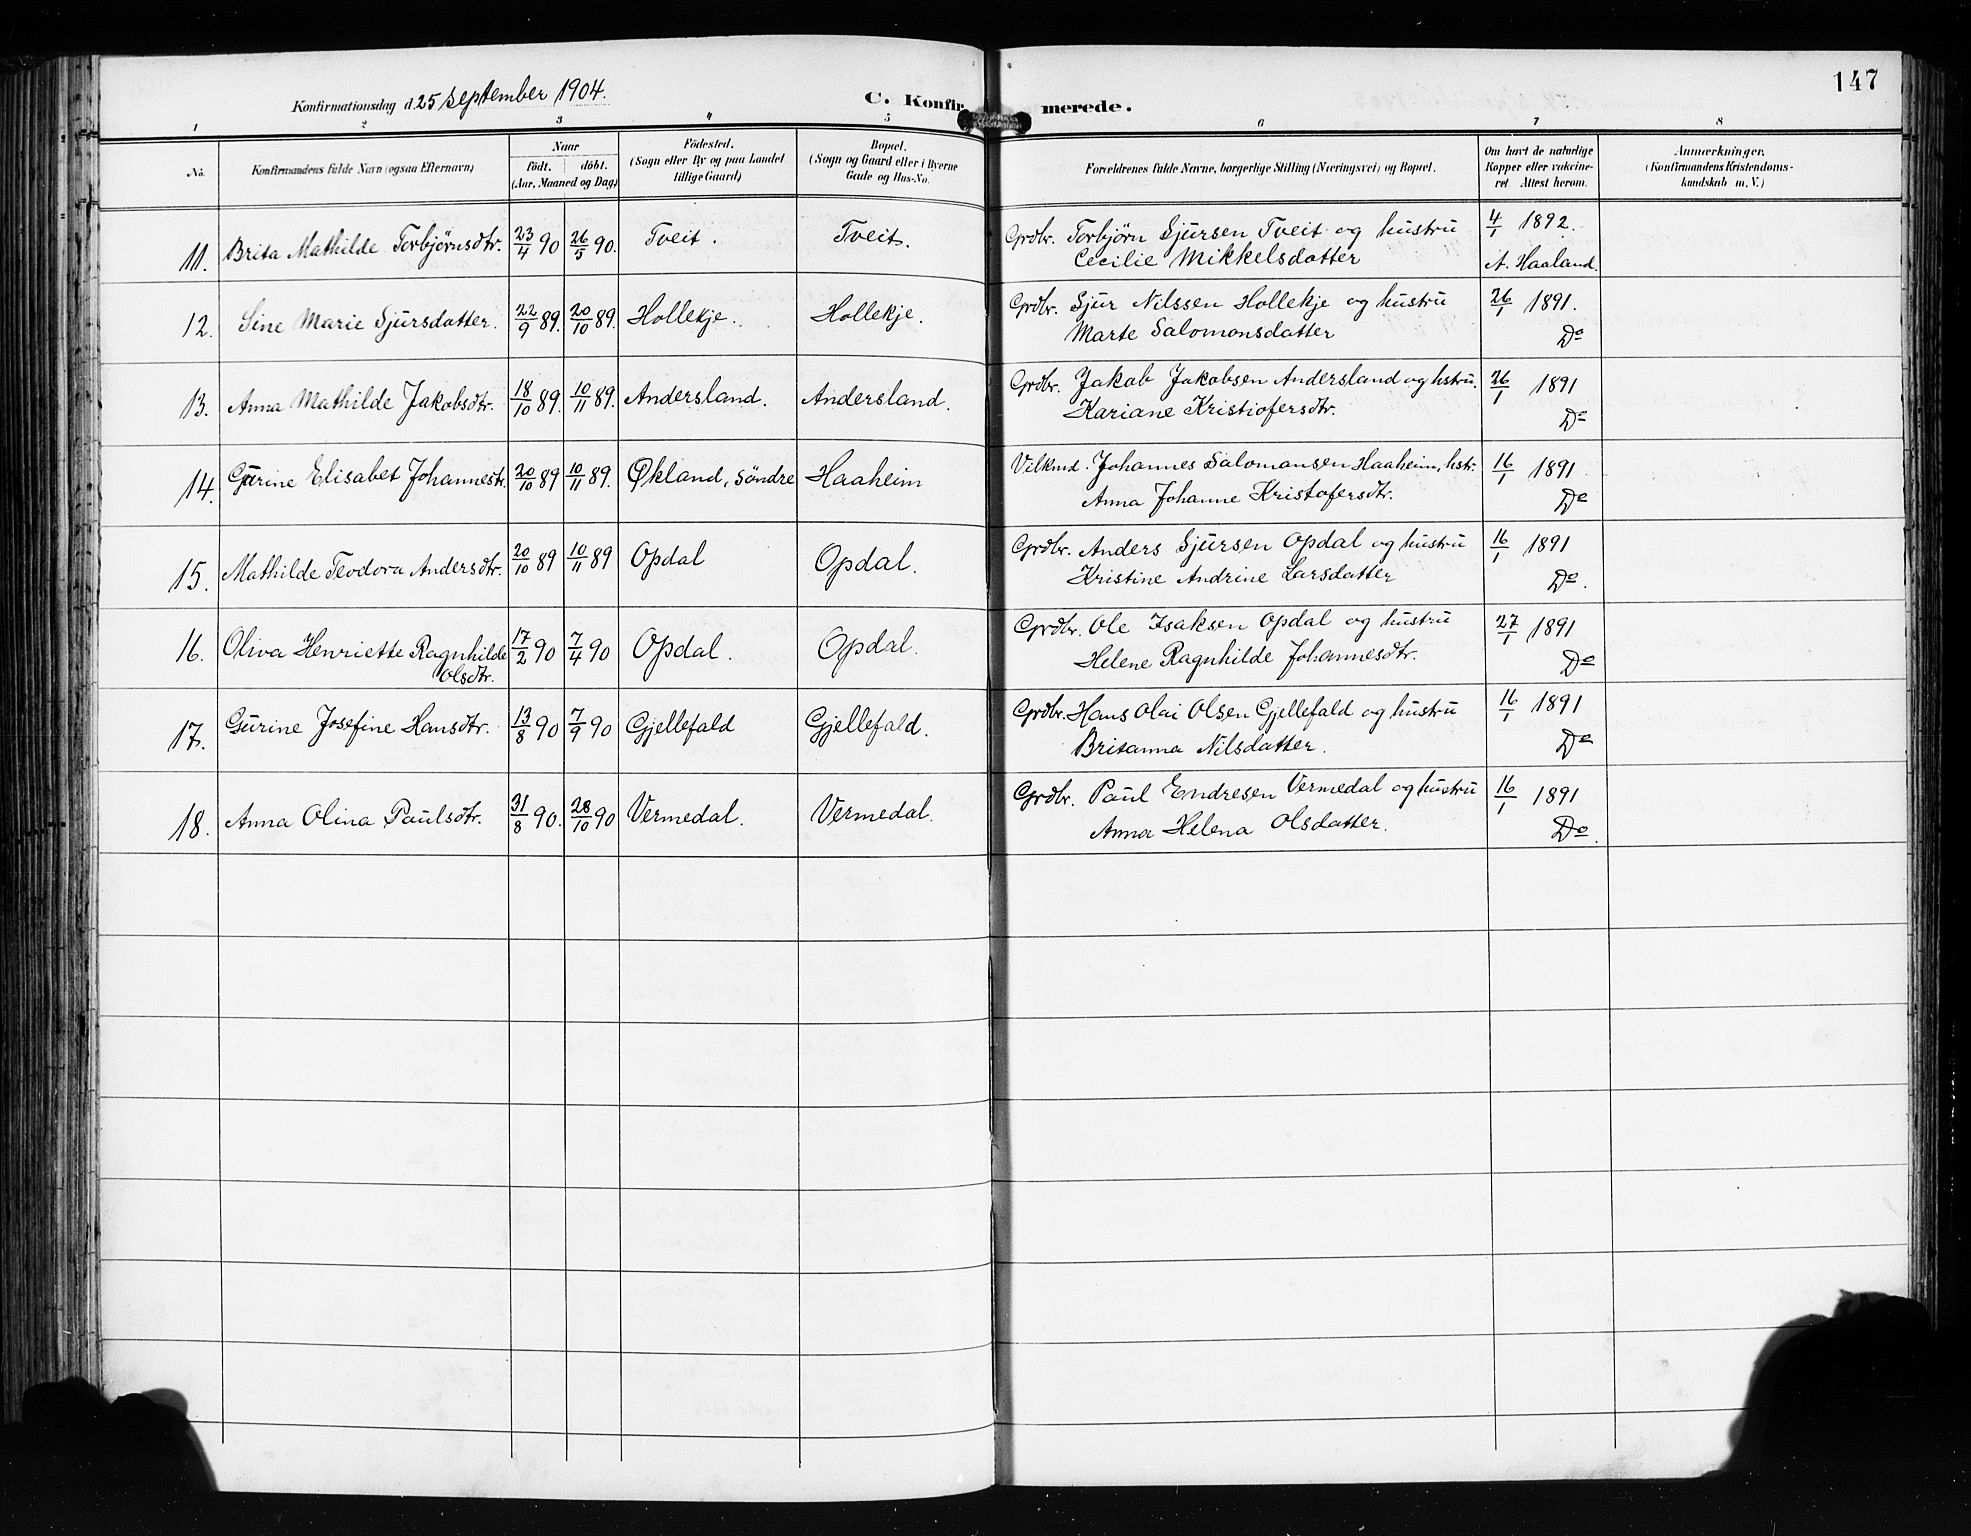 147
Konfirmationsdag d. 25 september 1904.
C. Konfirmerede.
1 2 3 4 5 6 7 8
No. Konfirmandens fulde Navn (ogsaa Efternavn) Naar født. døbt. (Aar, Maaned og Dag) Fødested. (Sogn eller By og paa Landet tillige Gaard) Bopæl. (Sogn og Gaard eller i Byerne Gade og Hus-No. Forældrenes fulde Navne, borgerlige Stilling (Næringsvei) og Bopæl. Om havt de naturlige Kopper eller vakcineret Attest herom. Anmærkninger. (Konfirmandens Kristendomskundskab m. V.)
11. Brita Mathilde Torbjørnsdtr. 23/4 90 26/5 90. Tveit. Tveit. Grdbr. Torbjørn Sjursen Tveit og hustru 4/1 1892.
Cecilie Mikkelsdatter A. Haaland.
12. Sine Marie Sjursdatter. 22/9 89. 20/10 89. Hollekje. Hollekje. Grdbr. Sjur Nilssen Hollekje og hustru 26/1 1891.
Marte Salomonsdatter Do
13. Anna Mathilde Jakobsdtr. 18/10 89. 10/11 89. Andersland. Andersland. Grdbr. Jakob Jakobsen Andersland og hstru. 26/1 1891
Kariane Kristiofersdtr. Do
14. Gurine Elisabet Johannestr. 20/10 89 10/11 89. Økland, Söndre Haaheim Vilkmd. Johannes Salomonsen Haaheim, hstr. 16/1 1891.
Anna Johanne Kristofersdtr. Do
15. Mathilde Teodora Andersdtr. 20/10 89 10/11 89 Opdal Opdal. Grdbr. Anders Sjursen Opdal og hustru 16/1 1891
Kristine Andrine Larsdatter Do.
16. Oliva Henriette Ragnhilde 17/2 90 7/4 90 Opdal. Opdal. Grdbr. Ole Isaksen Opdal og hustru 27/1 1891
Olsdtr. Helene Ragnhilde Johannesdtr. Do
17. Gurine Josefine Hansdtr. 13/8 90 7/9 90 Gjellefald Gjellefald. Grdbr. Hans Olai Olsen Gjellefald og hustru 16/1 1891
Britanna Nilsdatter. Do
18. Anna Olina Paulsdtr. 31/8 90. 28/10 90 Vermedal. Vermedal. Grdbr. Paul Endresen Vermedal og hustru 16/1 1891
Anna Helena Olsdatter. Do.